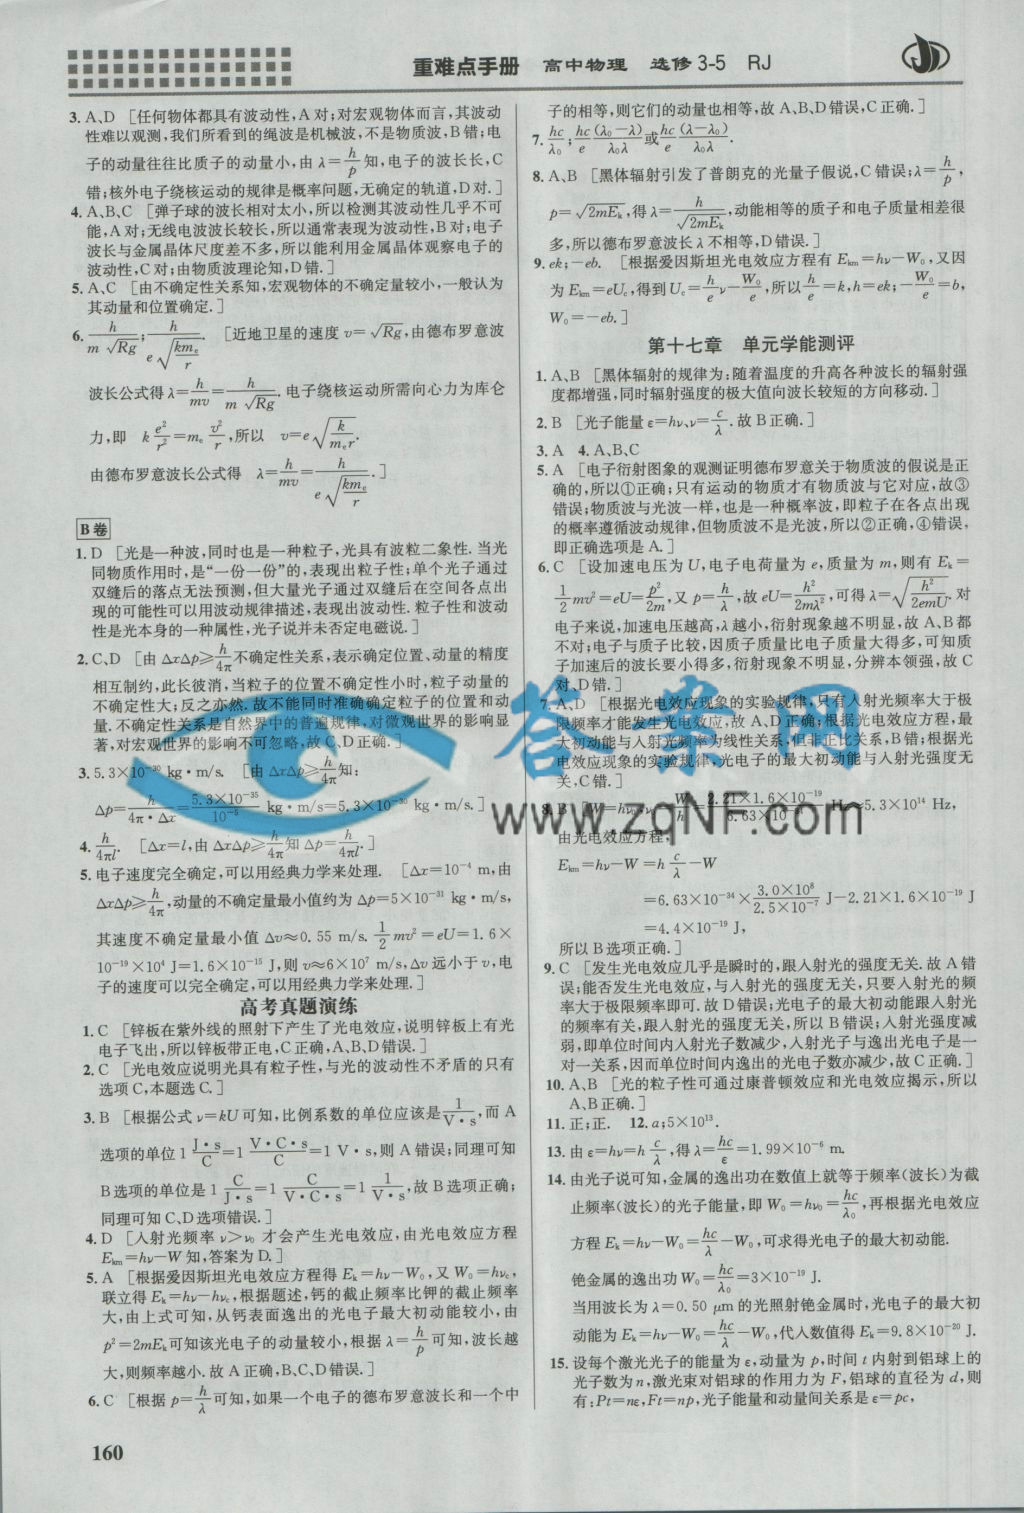 重难点手册 高中物理 选修 3-5 RJ
3. A、D [任何物体都具有波动性,A对;对宏观物体而言,其波动
性难以观测,我们所看到的绳波是机械波,不是物质波,B错;电
子的动量往往比质子的动量小,由 λ=h/p 知,电子的波长长,C
错;核外电子绕核运动的规律是概率问题,无确定的轨道,D对.]
4. A、B、C [弹子球的波长相对太小,所以检测其波动性几乎不可
能,A对;无线电波波长较长,所以通常表现为波动性,B对;电子
波长与金属晶体尺度差不多,所以能利用金属晶体观察电子的
波动性,C对;由物质波理论知,D错.]
5. A、C [由不确定性关系知,宏观物体的不确定量较小,一般认为
其动量和位置确定.]
6. h/(m√(Rg)); h/(e√(km_e/r)). [近地卫星的速度 v=√(Rg),由德布罗意波
波长公式得 λ=h/(mv)=h/(m√(Rg)). 电子绕核运动所需向心力为库仑
力,即 k e²/r²=m_e v²/r,所以 v=e√(k/(m_e r)).
由德布罗意波长公式得 λ=h/(mv)=h/(e√(km_e/r)).]
B卷
1. D [光是一种波,同时也是一种粒子,光具有波粒二象性. 当光
同物质作用时,是“一份一份”的,表现出粒子性;单个光子通过
双缝后的落点无法预测,但大量光子通过双缝后在空间各点出
现的可能性可以用波动规律描述,表现出波动性. 粒子性和波动
性是光本身的一种属性,光子说并未否定电磁说.]
2. C、D [由 ΔxΔp≥h/4π 不确定性关系,表示确定位置、动量的精度
相互制约,此长彼消,当粒子的位置不确定性小时,粒子动量的
不确定性大;反之亦然. 故不能同时准确确定粒子的位置和动
量. 不确定性关系是自然界中的普遍规律,对微观世界的影响显
著,对宏观世界的影响不可忽略,故C、D正确.]
3. 5.3×10⁻³⁰ kg·m/s. [由 ΔxΔp≥h/4π 知:
Δp=h/(4π·Δx)=5.3×10⁻³⁵/10⁻⁵ kg·m/s=5.3×10⁻³⁰ kg·m/s.]
4. h/4πl. [Δx=l,由 ΔxΔp≥h/4π 知 Δp=h/4πl.]
5. 电子速度完全确定,可以用经典力学来处理. [Δx=10⁻⁴ m,由
ΔxΔp≥h/4π,动量的不确定量最小值约为 Δp=5×10⁻³¹ kg·m/s,
其速度不确定量最小值 Δv≈0.55 m/s. 1/2 mv²=eU=1.6×
10⁻¹⁹×10⁴ J=1.6×10⁻¹⁵ J,则 v≈6×10⁷ m/s,Δv 远小于 v,电
子的速度可以完全确定,可以用经典力学来处理.]
高考真题演练
1. C [锌板在紫外线的照射下产生了光电效应,说明锌板上有光
电子飞出,所以锌板带正电,C正确,A、B、D错误.]
2. C [光电效应说明光具有粒子性,与光的波动性不矛盾的只有
选项C,本题选C.]
3. B [根据公式 ν=kU 可知,比例系数的单位应该是 1/(V·s),而 A
选项的单位 1 J·s/C=1 V·C·s/C=1 V·s,则A错误;同理可知
B选项的单位是 1 C/(J·s)=1 C/(V·C·s)=1 1/(V·s),故B选项正确;
同理可知C、D选项错误.]
4. D [入射光频率 ν>ν₀ 才会产生光电效应,由光电效应方程
Eₖₘ=hν-W 知,答案为D.]
5. A [根据爱因斯坦光电效应方程得 Eₖ=hν-W₀,又 W₀=hν_c,
联立得 Eₖ=hν-hν_c,根据题述,钙的截止频率比钾的截止频率
大,由上式可知,从钙表面逸出的光电子最大初动能较小,由
p²=2mEₖ 可知该光电子的动量较小,根据 λ=h/p 可知,波长越
大,则频率越小. 故A正确,B、C、D错误.]
6. C [根据 p=h/λ 可知,如果一个电子的德布罗意波长和一个中
160
子的相等,则它们的动量也相等,故A、B、D错误,C正确.]
7. hc/λ₀; hc/e (λ₀-λ)/λ₀λ 或 hc/e (λ-λ₀)/λ₀λ.
8. A、B [黑体辐射引发了普朗克的光量子假说,C错误;λ=h/p,
p=√(2mEₖ),得 λ=h/√(2mEₖ),动能相等的质子和电子质量相差很
多,所以德布罗意波长 λ 不相等,D错误.]
9. ek;-eb. [根据爱因斯坦光电效应方程有 Eₖₘ=hν-W₀,又因
为 Eₖₘ=eU_c,得到 U_c=h/e ν-W₀/e,所以 h/e=k,h=ek;-W₀/e=b,
W₀=-eb.]
第十七章 单元学能测评
1. A、B [黑体辐射的规律为:随着温度的升高各种波长的辐射强
度都增强,同时辐射强度的极大值向波长较短的方向移动.]
2. B [光子能量 ε=hν、ν=c/λ. 故B正确.]
3. A 4. A、B、C
5. A [电子衍射图象的观测证明德布罗意关于物质波的假说是正
确的,所以①正确;只有运动的物质才有物质波与它对应,故③
错误;物质波与光波一样,也是一种概率波,即粒子在各点出现
的概率遵循波动规律,但物质波不是光波,所以②正确,④错误,
即正确选项是A.]
6. C [设加速电压为U,电子电荷量为e,质量为m,则有 Eₖ=
1/2 mv²=eU=p²/2m,又 p=h/λ,故 eU=h²/2mλ²,可得 λ=√(h²/2emU). 对
电子来说,加速电压越高,λ越小,衍射现象越不明显,故A、B都
不对;电子与质子比较,因质子质量比电子质量大得多,可知质
子加速后的波长要小得多,衍射现象不明显,分辨本领强,故C
对、D错.]
7. A、D [根据光电效应现象的实验规律,只有入射光频率大于极
限频率才能发生光电效应,故A、D正确;根据光电效应方程,最
大初动能与入射光频率为线性关系,但非正比关系,B错;根据光
电效应现象的实验规律,光电子的最大初动能与入射光强度无
关,C错.]
8. B [W=hν₀,ν₀=W/h=2.21×1.6×10⁻¹⁹/6.63×10⁻³⁴ Hz≈5.3×10¹⁴ Hz,
由光电效应方程,
Eₖₘ=hν-W=h c/λ-W
=6.63×10⁻³⁴×3.0×10⁸/2.5×10⁻⁷ J-2.21×1.6×10⁻¹⁹ J
=4.4×10⁻¹⁹ J,
所以B选项正确.]
9. C [发生光电效应几乎是瞬时的,跟入射光的强度无关. 故A错
误;能否发生光电效应,与入射光的强度无关,只要入射光的频
率大于极限频率即可. 故D错误;光电子的最大初动能跟入射光
的频率有关,跟入射光的强度无关,所以B错误;入射光强度减
弱,即单位时间内入射光子数减少,入射光子与逸出光电子是一
对一关系,因而单位时间内逸出的光电子数亦减少,故C正确.]
10. A、B [光的粒子性可通过康普顿效应和光电效应揭示,所以
A、B正确.]
11. 正;正. 12. a;5×10¹³.
13. 由 ε=hν=h c/λ,得 λ=hc/ε=1.99×10⁻⁶ m.
14. 由光子说可知,金属的逸出功在数值上就等于频率(波长)为截
止频率(波长)的光子能量,即 W₀=hν₀=hc/λ₀,再根据光电效应
方程 Eₖ=hν-W₀=hc/λ-W₀,可求得光电子的最大初动能.
铯金属的逸出功 W₀=hc/λ₀=3×10⁻¹⁹ J.
当用波长为 λ=0.50 μm 的光照射铯金属时,光电子的最大初
动能为 Eₖ=hν-W₀=hc/λ-W₀,代入数值得 Eₖ=9.8×10⁻²⁰ J.
15. 设每个激光光子的能量为ε,动量为p,时间t内射到铝球上的
光子数为n,激光束对铝球的作用力为F,铝球的直径为d,则
有:Pt=nε,Ft=np,光子能量和动量间关系是 ε=pc,
答案网
www.zqNF.com